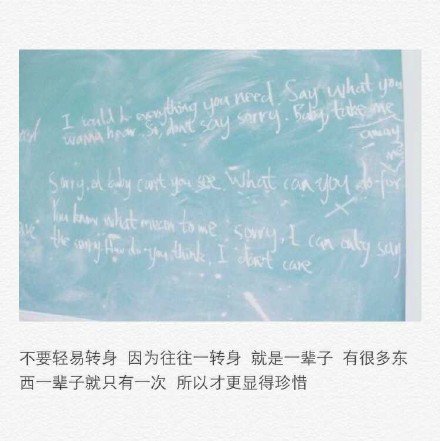 I could be everything you need. Say what you
wanna hear. So, don't say sorry. Baby take me
away
Sorry, oh baby can't you see. What can you do for
me
You know what mean to me sorry. I can only say
the sorry How do you think, I don't care
不要轻易转身 因为往往一转身 就是一辈子 有很多东
西一辈子就只有一次 所以才更显得珍惜